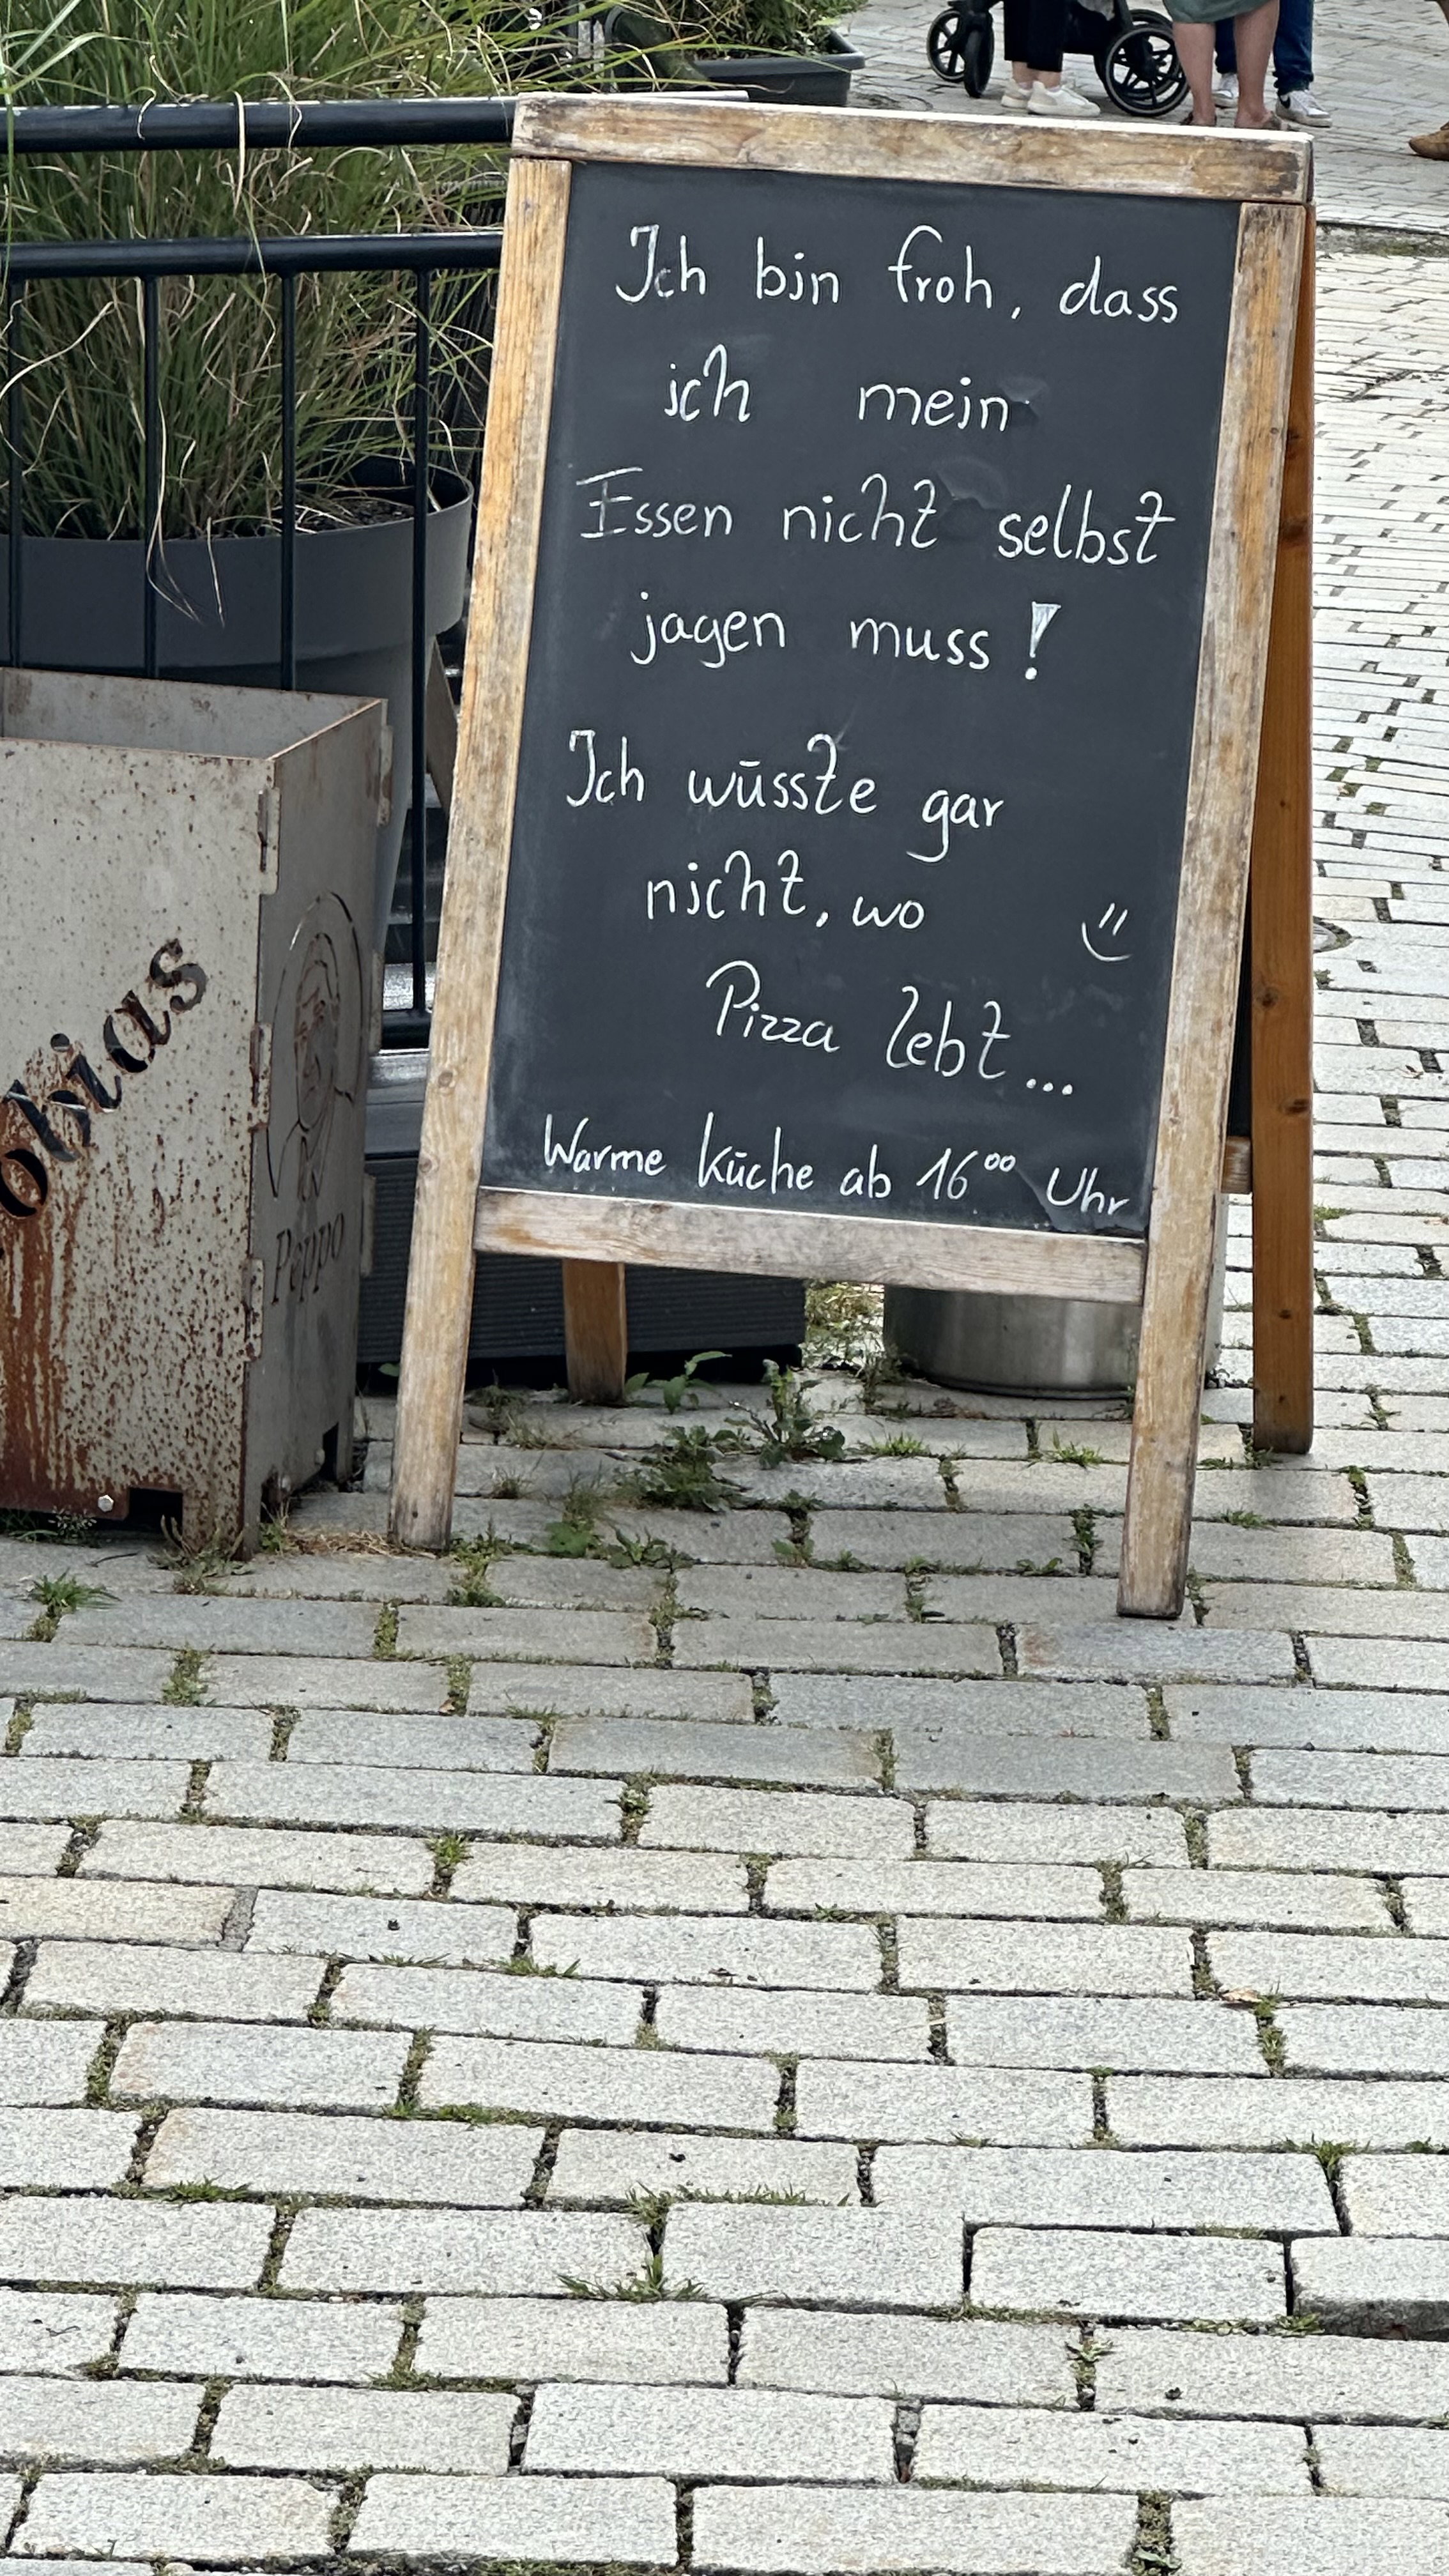 Ich bin froh, dass
ich mein
Essen nicht selbst
jagen muss!
Ich wüsste gar
nicht, wo
Pizza lebt...
Warme Küche ab 16⁰⁰ Uhr
obias
Peppo